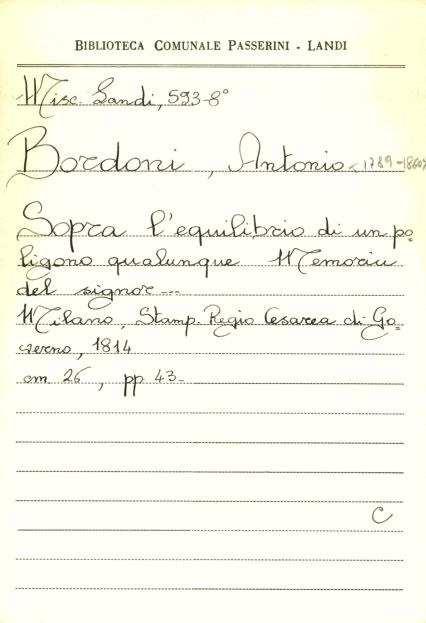 BIBLIOTECA COMUNALE PASSERINI - LANDI
Misc. Landi, 593-8°
Bordoni, Antonio <1789-1860>
Sopra l'equilibrio di un po=
ligono qualunque Memoria
del signor ---
Milano, Stamp. Regio Cesarea di Go=
verno, 1814
cm 26, pp 43-
C